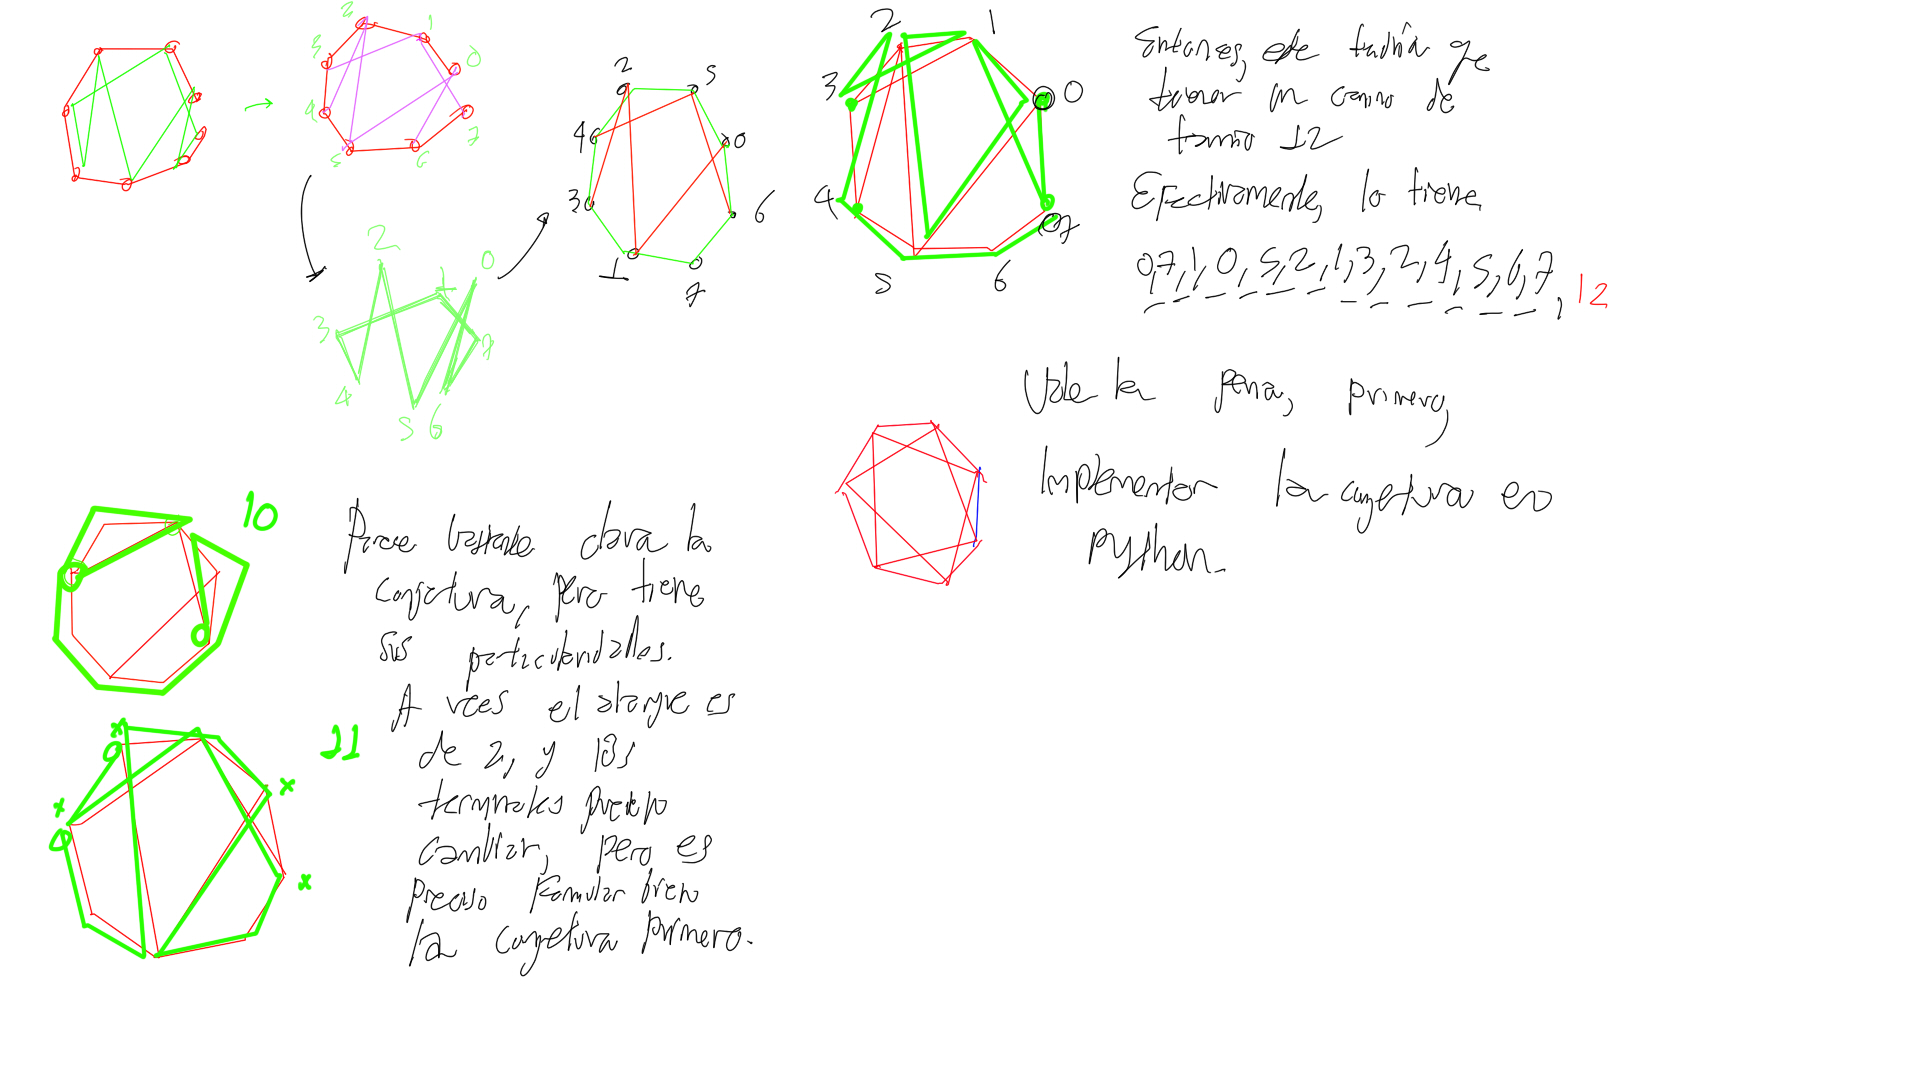 2
1
0
3
4
5
6
7
2
5
4
0
3
6
1
7
2
1
0
3
4
5
6
7
2
1
0
3
7
4
5
6
Entonces, este tendría que
tener un camino de
tamño 12
Efectivamente, lo tiene
0,7,1,0,5,2,1,3,2,4,5,6,7, 12
Vale la pena, primero,
Implementar la conjetura en
Python.
10
Parece bastante clara la
conjetura, pero tiene
sus particularidades.
A veces el ataque es
de 2, y los
terminales pueden
cambiar, pero es
preciso formular bien
la conjetura primero.
11
x
x
x
x